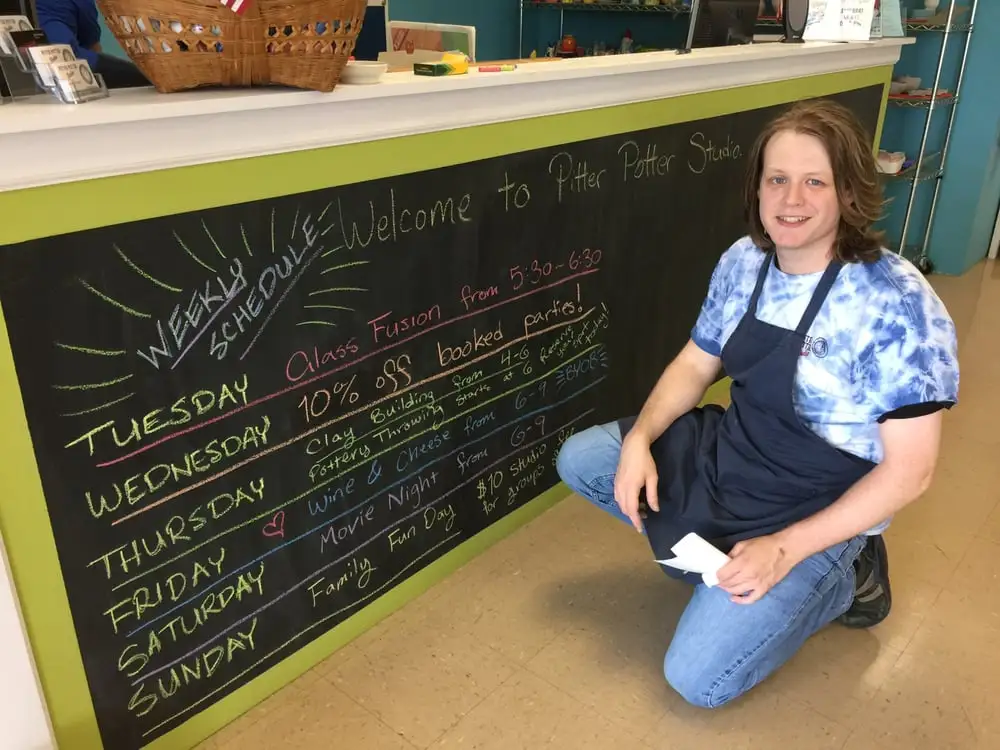 Welcome to Pitter Potter Studio.
WEEKLY
SCHEDULE
TUESDAY Glass Fusion from 5:30-6:30
WEDNESDAY 10% off booked parties!
THURSDAY Clay Building from 4-6
Pottery Throwing starts at 6 Reserve your spot today!
FRIDAY Wine & Cheese from 6-9 BYOB
SATURDAY Movie Night from 6-9
SUNDAY Family Fun Day $10 studio fee
for groups